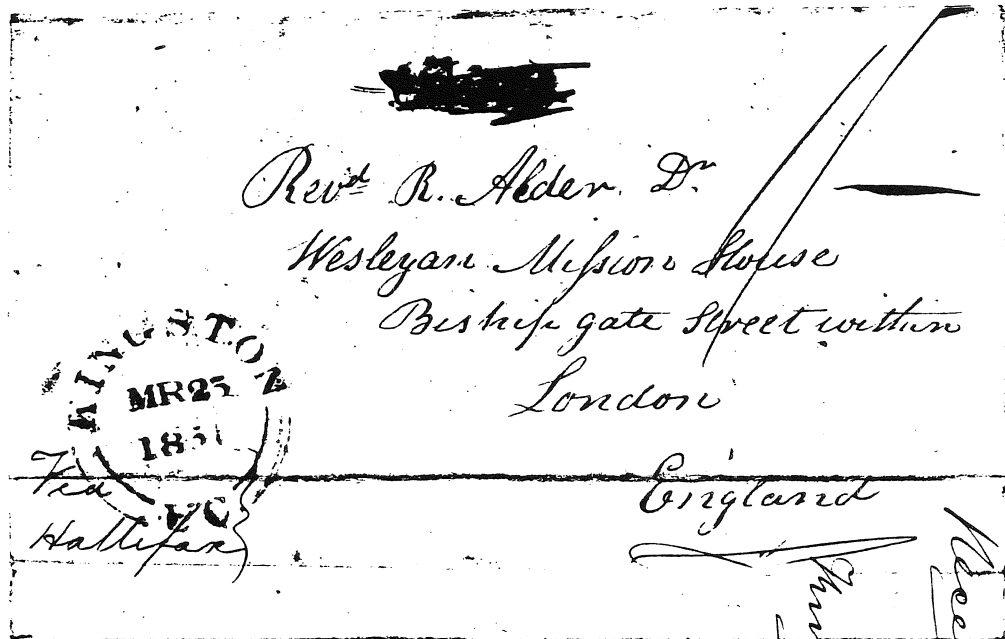 Revd R. Alder Dr
Wesleyan Mission House
Bishopgate Street within
London
England
KINGSTON
MR25
1851
UC
Via
Hallifax